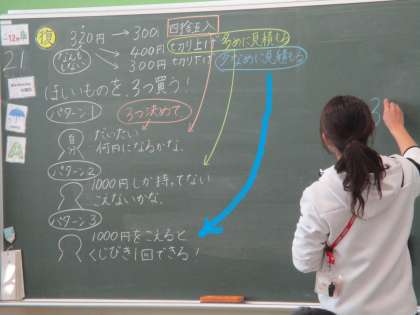 復 320円→300円 四捨五入
400円 切り上げ 多めに見積もる
300円 切りすて 少なめに見積もる
ほしいものを、3つ買う!
パターン1 3つ決めて
自分 だいたい
何円になるかな。
パターン2
1000円しか持ってない
こえないかな。
パターン3
1000円をこえると
くじびき1回できる!